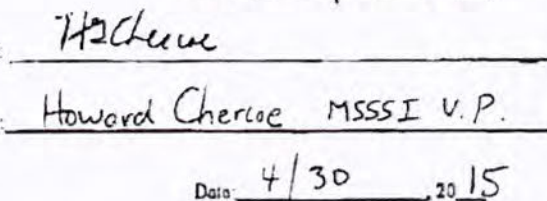 Howard Chercoe MSSSI V.P.
Date: 4/30, 20 15